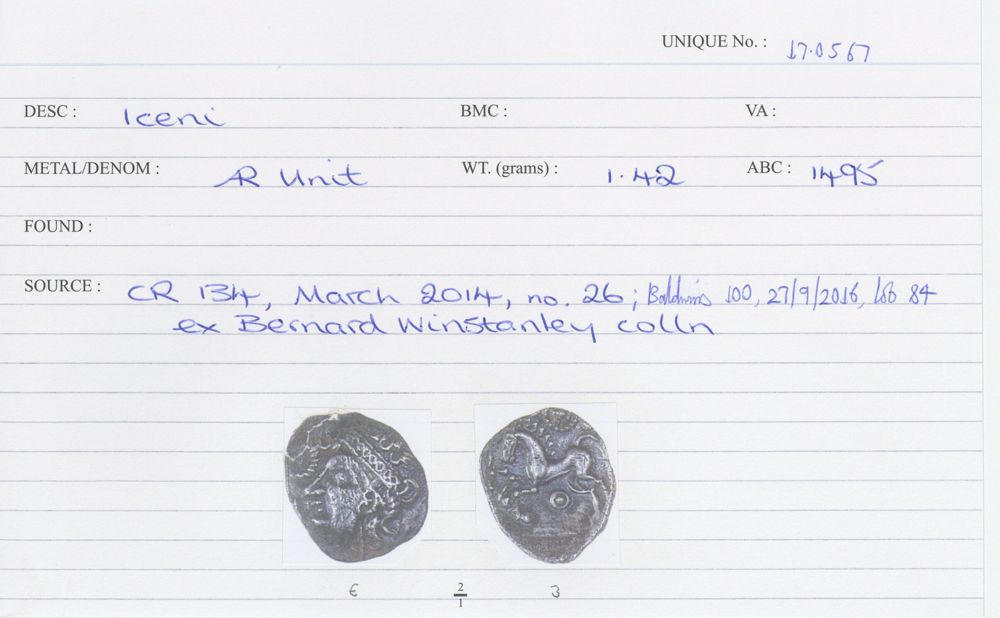 UNIQUE No. : 17.0567
DESC : Iceni BMC : VA :
METAL/DENOM : AR Unit WT. (grams) : 1.42 ABC : 1495
FOUND :
SOURCE : CR 134, March 2014, no. 26; Baldwins 100, 27/9/2016, lot 84
ex Bernard Winstanley colln
2
1